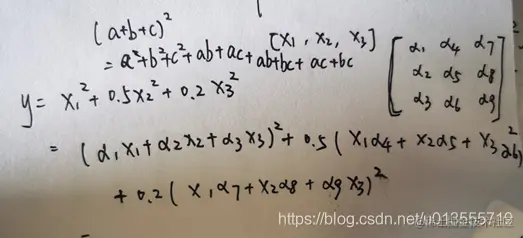 (a+b+c)²
= a²+b²+c²+ab+ac+ab+bc+ac+bc
[x₁, x₂, x₃]
[α₁ α₄ α₇
α₂ α₅ α₈
α₃ α₆ α₉]
y = x₁² + 0.5x₂² + 0.2 x₃²
= (α₁x₁+α₂x₂+α₃x₃)² + 0.5 (x₁α₄ + x₂α₅ + x₃α₆)²
+ 0.2 ( x₁α₇ + x₂α₈ + α₉ x₃)²
https://blog.csdn.net/u013555719